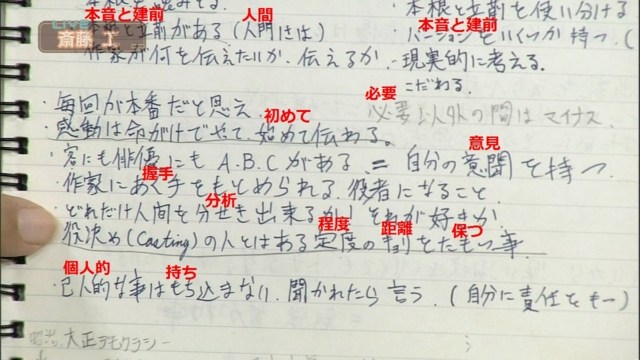 本音と建前 人間 本音と建前
斎藤 工
本根と立前を使い分ける
と立前がある(人門は)
作家が何を伝えたいか、伝えるか
・バージョンをいくつか持つ。(
現実的に考える。
こだわる。
必要
・毎回が本番だと思え
必要以外の間はマイナス
初めて
・感動は命がけでやて、始めて伝わる。
意見
・客にも俳優にも A.B.C がある = 自分の意聞を持つ
握手
・作家にあく手をもとめられる、役者になること
分析
・どれだけ人間を分せき出来るか! それが好きか
程度 距離 保つ
役決め(Casting)の人とはある定度のキョリをたもつ事
個人的 持ち
・己人的な事はもち込まない、聞かれたら言う。(自分に責任をもー)
大正デモクラシー